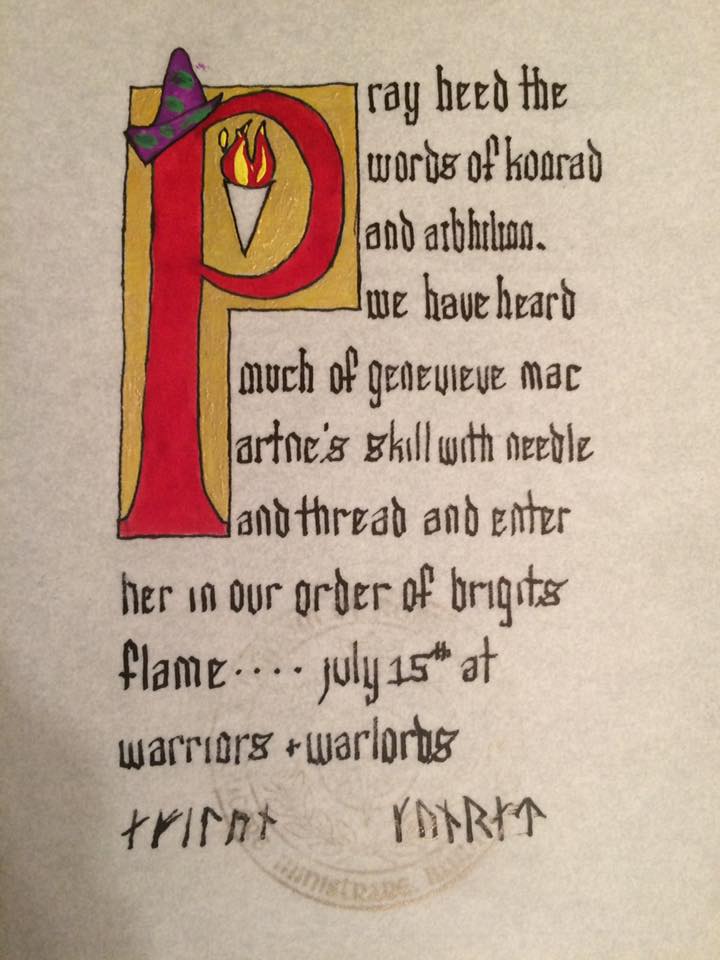 Pray heed the
words of konrad
and
we have heard
much of genevieve mac
artne's skill with needle
and thread and enter
her in our order of brigits
flame.... july 15th at
warriors + warlords
ᚴᚢᚾᚱᛅᛏ
MINISTRARE